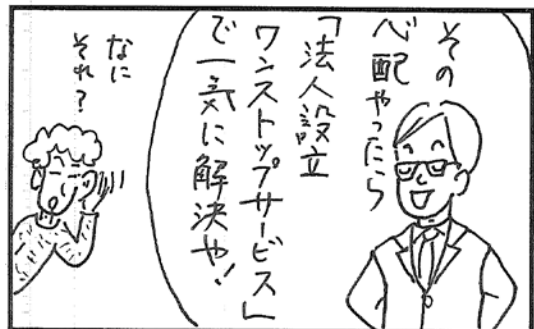 その
心配やったら
「法人設立
ワンストップサービス」
で一気に解決や!
なに
それ?